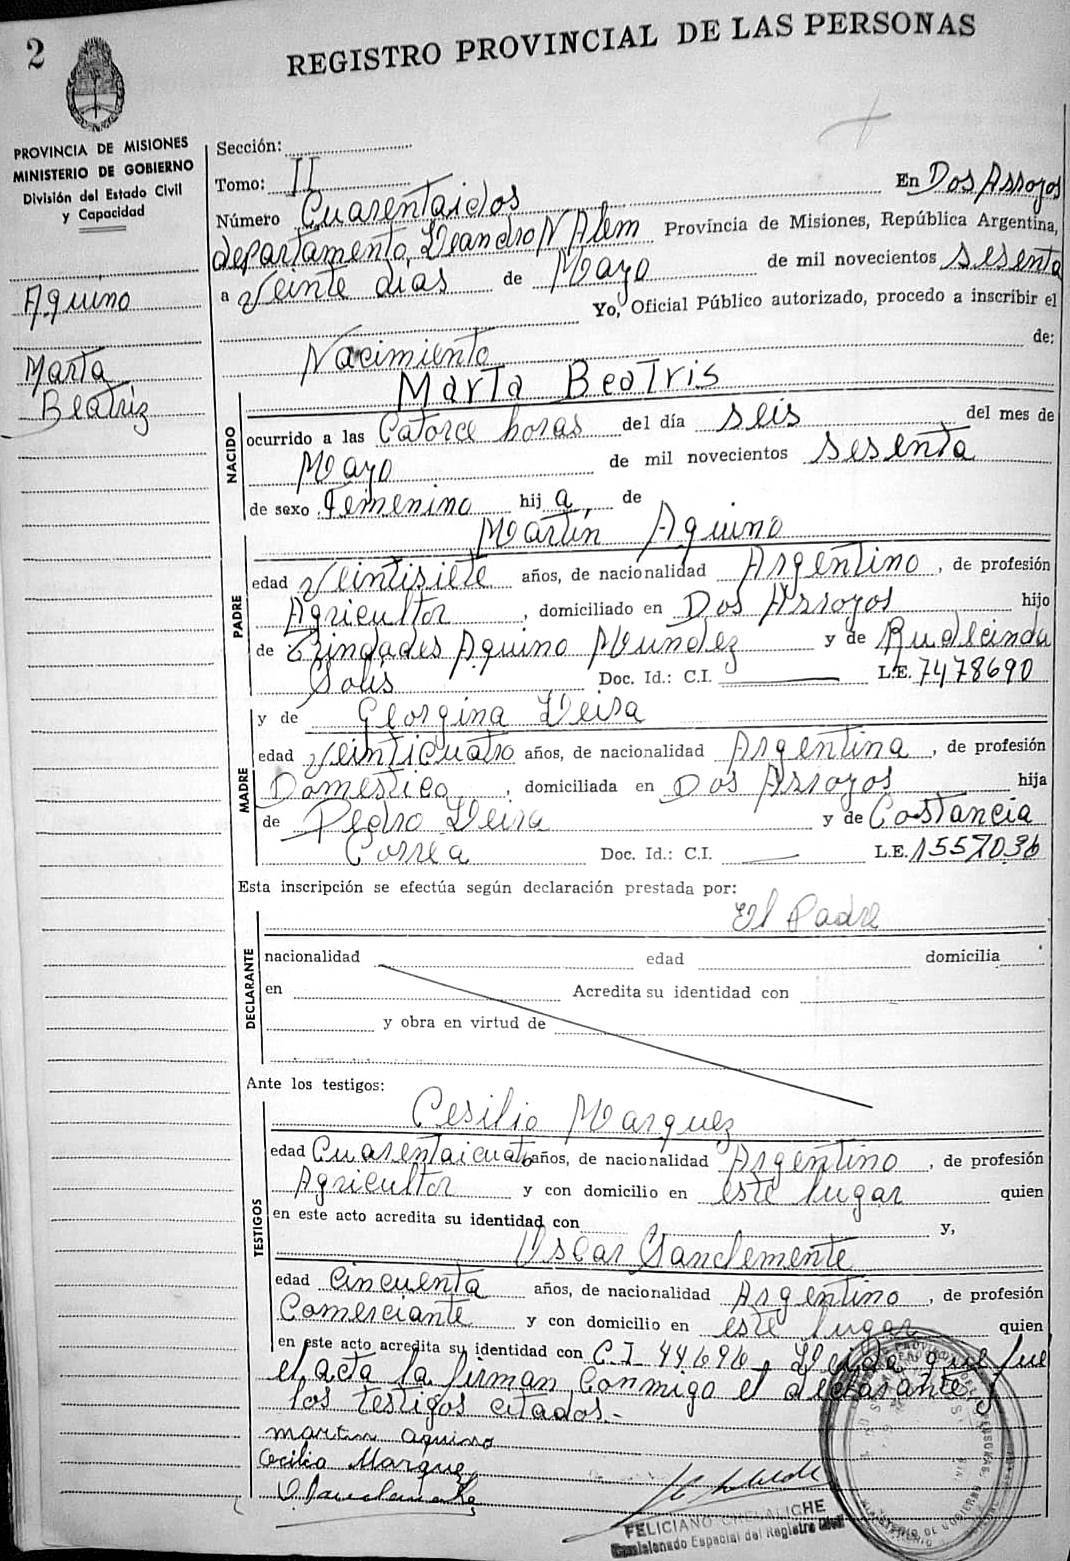 2
REGISTRO PROVINCIAL DE LAS PERSONAS
PROVINCIA DE MISIONES
MINISTERIO DE GOBIERNO
División del Estado Civil
y Capacidad
Aquino
Marta
Beatriz
Sección:
Tomo: II
En Dos Arroyos
Número Cuarentaidos
departamento, Leandro N Alem Provincia de Misiones, República Argentina,
a Veinte dias de Mayo de mil novecientos Sesenta
Yo, Oficial Público autorizado, procedo a inscribir el
Nacimiento de:
NACIDO
Marta Beatris
ocurrido a las Catorce horas del día seis del mes de
Mayo de mil novecientos Sesenta
de sexo Femenino hija de
PADRE
Martin Aquino
edad Veintisiete años, de nacionalidad Argentino, de profesión
Agricultor, domiciliado en Dos Arroyos hijo
de Trindades Aquino Mundez y de Rudecinda
Solis Doc. Id.: C.I. L.E. 7478690
MADRE
y de Georgina Leira
edad Veinticuatro años, de nacionalidad Argentina, de profesión
Domestica, domiciliada en Dos Arroyos hija
de Pedro Leira y de Costancia
Correa Doc. Id.: C.I. L.E. 1557036
Esta inscripción se efectúa según declaración prestada por:
El Padre
DECLARANTE
nacionalidad edad domicilia
en Acredita su identidad con
y obra en virtud de
Ante los testigos:
TESTIGOS
Cesilio Marquez
edad Cuarentaicuatro años, de nacionalidad Argentino, de profesión
Agricultor y con domicilio en este lugar quien
en este acto acredita su identidad con y,
Oscar Sanclemente
edad Cincuenta años, de nacionalidad Argentino, de profesión
Comerciante y con domicilio en este lugar quien
en este acto acredita su identidad con C.I 44696, Leida que fue
el acta la firman conmigo el declarante y
los testigos citados.-
martin aquino
Cecilio Marquez
O. Sanclemente
FELICIANO CHELALICHE
Comisionado Especial del Registro Civil